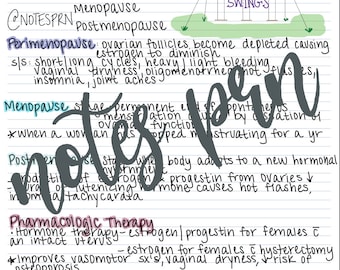 @NOTESPRN
Menopause
Postmenopause
SWINGS
Perimenopause: ovarian follicles become depleted causing
estrogen to diminish
s/s: short/long cycles, heavy/light bleeding
vaginal dryness, oligomenorrhea, hot flashes,
insomnia, joint aches
Menopause: stage permanent
menstruation caused by cessation of
ovarian function
*when a woman has stopped menstruating for a yr
Postmenopause: stage when body adapts to a new hormonal
environment
↓ production of estrogen & progestin from ovaries ↓
luteinizing hormone causes hot flashes,
insomnia, tachycardia
Pharmacologic Therapy
-Hormone therapy - estrogen/progestin for females c̄
an intact uterus
-estrogen for females c̄ hysterectomy
*Improves vasomotor sx's, vaginal dryness, ↓ risk of
osteoporosis
notes prn